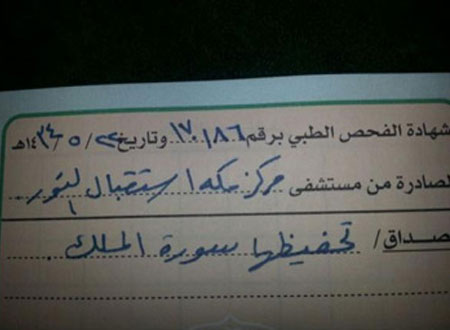 شهادة الفحص الطبي برقم ١٧٠١٨٦ وتاريخ / ٥ / ١٤٣٤هـ
لصادرة من مستشفى مركز مكه استقبال النور
صداق / تحفيظها سورة الملك